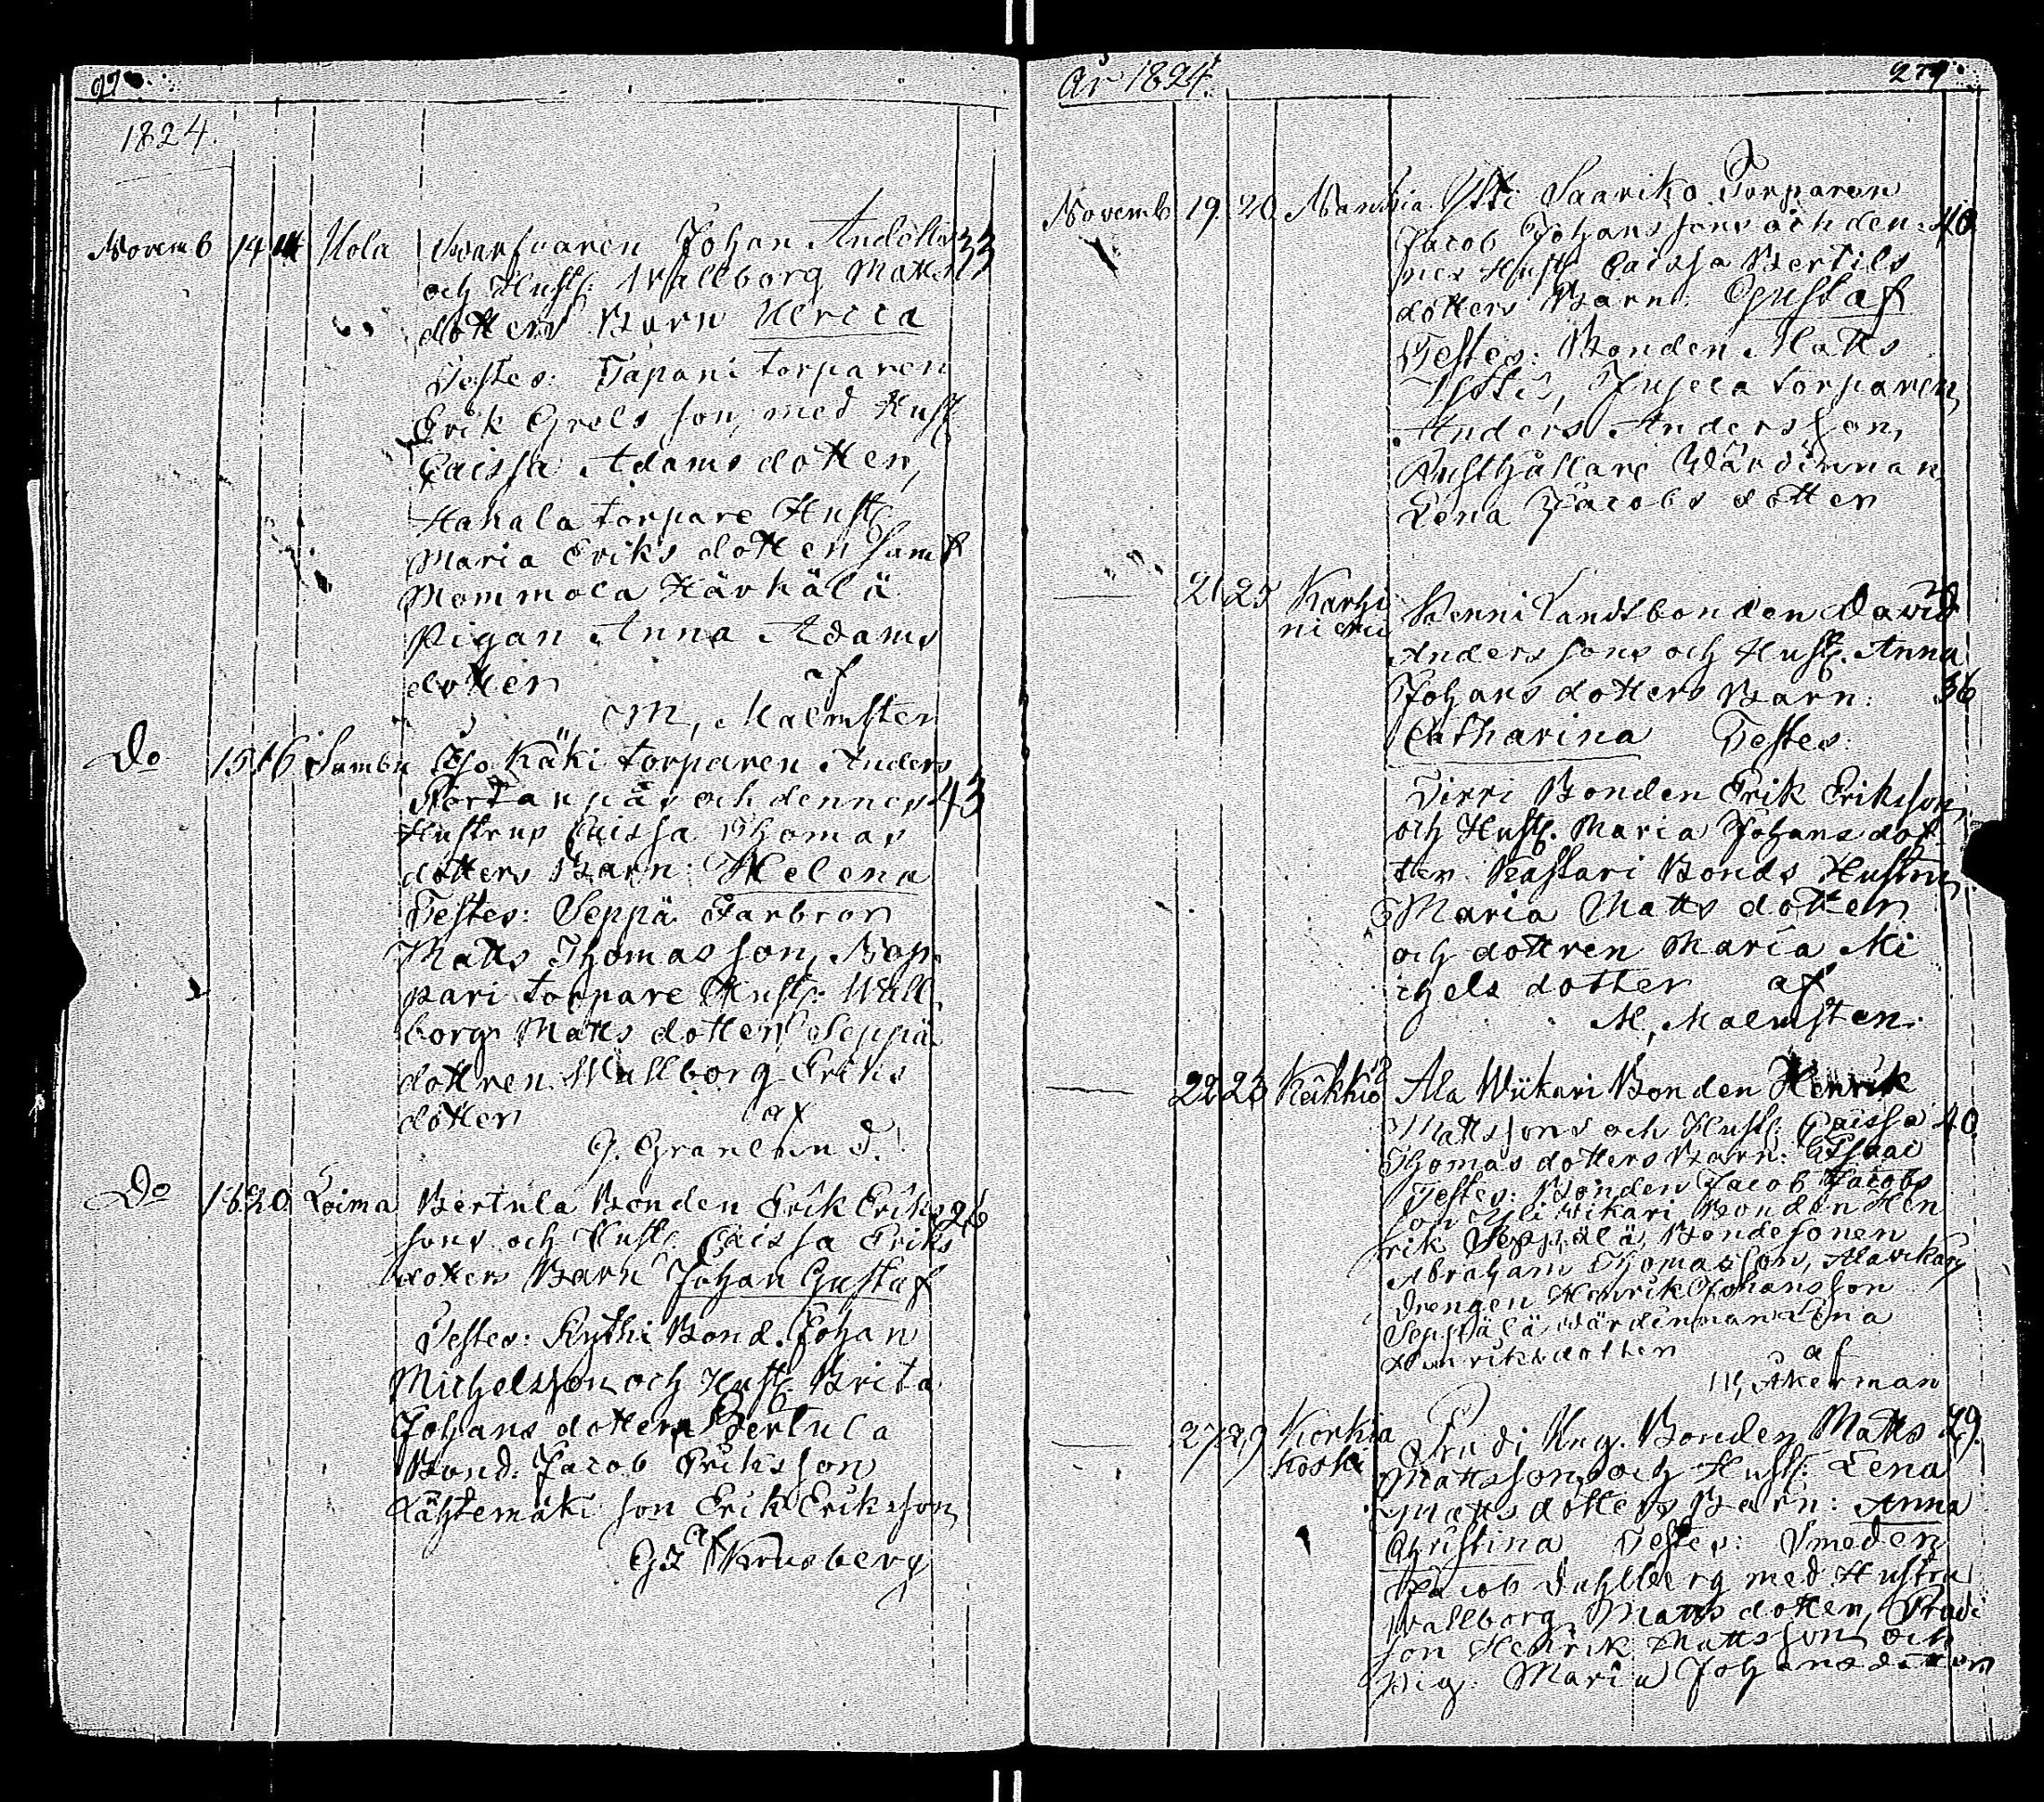 1824.
Novemb 14 14 Kola Swarfvaren Johan Andelin 33
och Hust: Wallborg Matts
dotters Barn Ulrica
Testes: Tapani torparen
Erik Grels son, med Hust
Caissa Adams dotter,
Hakala torpare Hust
Maria Eriks dotter samt
Mommola Härkälä
Pigan Anna Adams
dotter af
M, Malmsten
Do 15 16 Sambu Iso Käki torparen Anders
och dennes 43
Hustrus Caissa Thomas
dotters Barn: Helena
Testes: Seppä Farbror
Matts Thomas son, Nop
pari torpare Hust: Wall
borg Matts dotter Seppä
dottren Wallborg Eriks
dotter af
G. Granlund.
Do 18 20 Loima Bertula Bonden Erik Eriks 26
sons och Hust: Caissa Eriks
dotters Barn Johan Gustaf
Testes: Kythi Bond. Johan
Michelsson och Hust: Brita
Johans dotter, Bertula
Bond: Jacob Eriksson
Lähtemäki son Erik Eriksson
af
Krusberg
År 1824. 279.
Novemb 19 20 Ytti Saariko Torparen
Jacob Johanssons och den 40
nes Hust Caissa Bertils
dotters Barn: Gustaf
Testes: Bonden Matts
Ytti, Jujela torparen
Anders Andersson,
Rusthållare Wärdinnan
Lena Jacobs dotter
21 25 Karhi
niemi Penni Landtbonden David
Anders sons och Hust. Anna
Johans dotters Barn: 36
Catharina Testes:
Pirri Bonden Erik Eriksson,
och Hust. Maria Johansdot
ter. Rastari Bonds Hustru
Maria Matts dotter
och dottren Maria Mi
chels dotter af
M, Malmsten.
22 23 Keikkiö Ala Wikari Bonden Henrik
Mattssons och Hust: Caissa 40
Thomas dotters Barn: Esaai
Testes: Bonden Jacob Jacobs
son Yli wikari Bonden Hen
rik Seppälä, Bondesonen
Abraham Thomasson, Alavikari
Drengen Henrik Johansson
Seppälä wärdinnan Lena
Henriksdotter af
Åkerman
27 29 Korkia
koski Prudi Ung. Bonden Matts 29.
Mattssons och Hust: Lena
Matts dotters Barn: Anna
Christina Testes: Smeden
Jacob Dahlberg med Hustru
Wallborg Matts dotter, Prudi
son Henrik Mattsson och
Pig. Maria Johansdotter